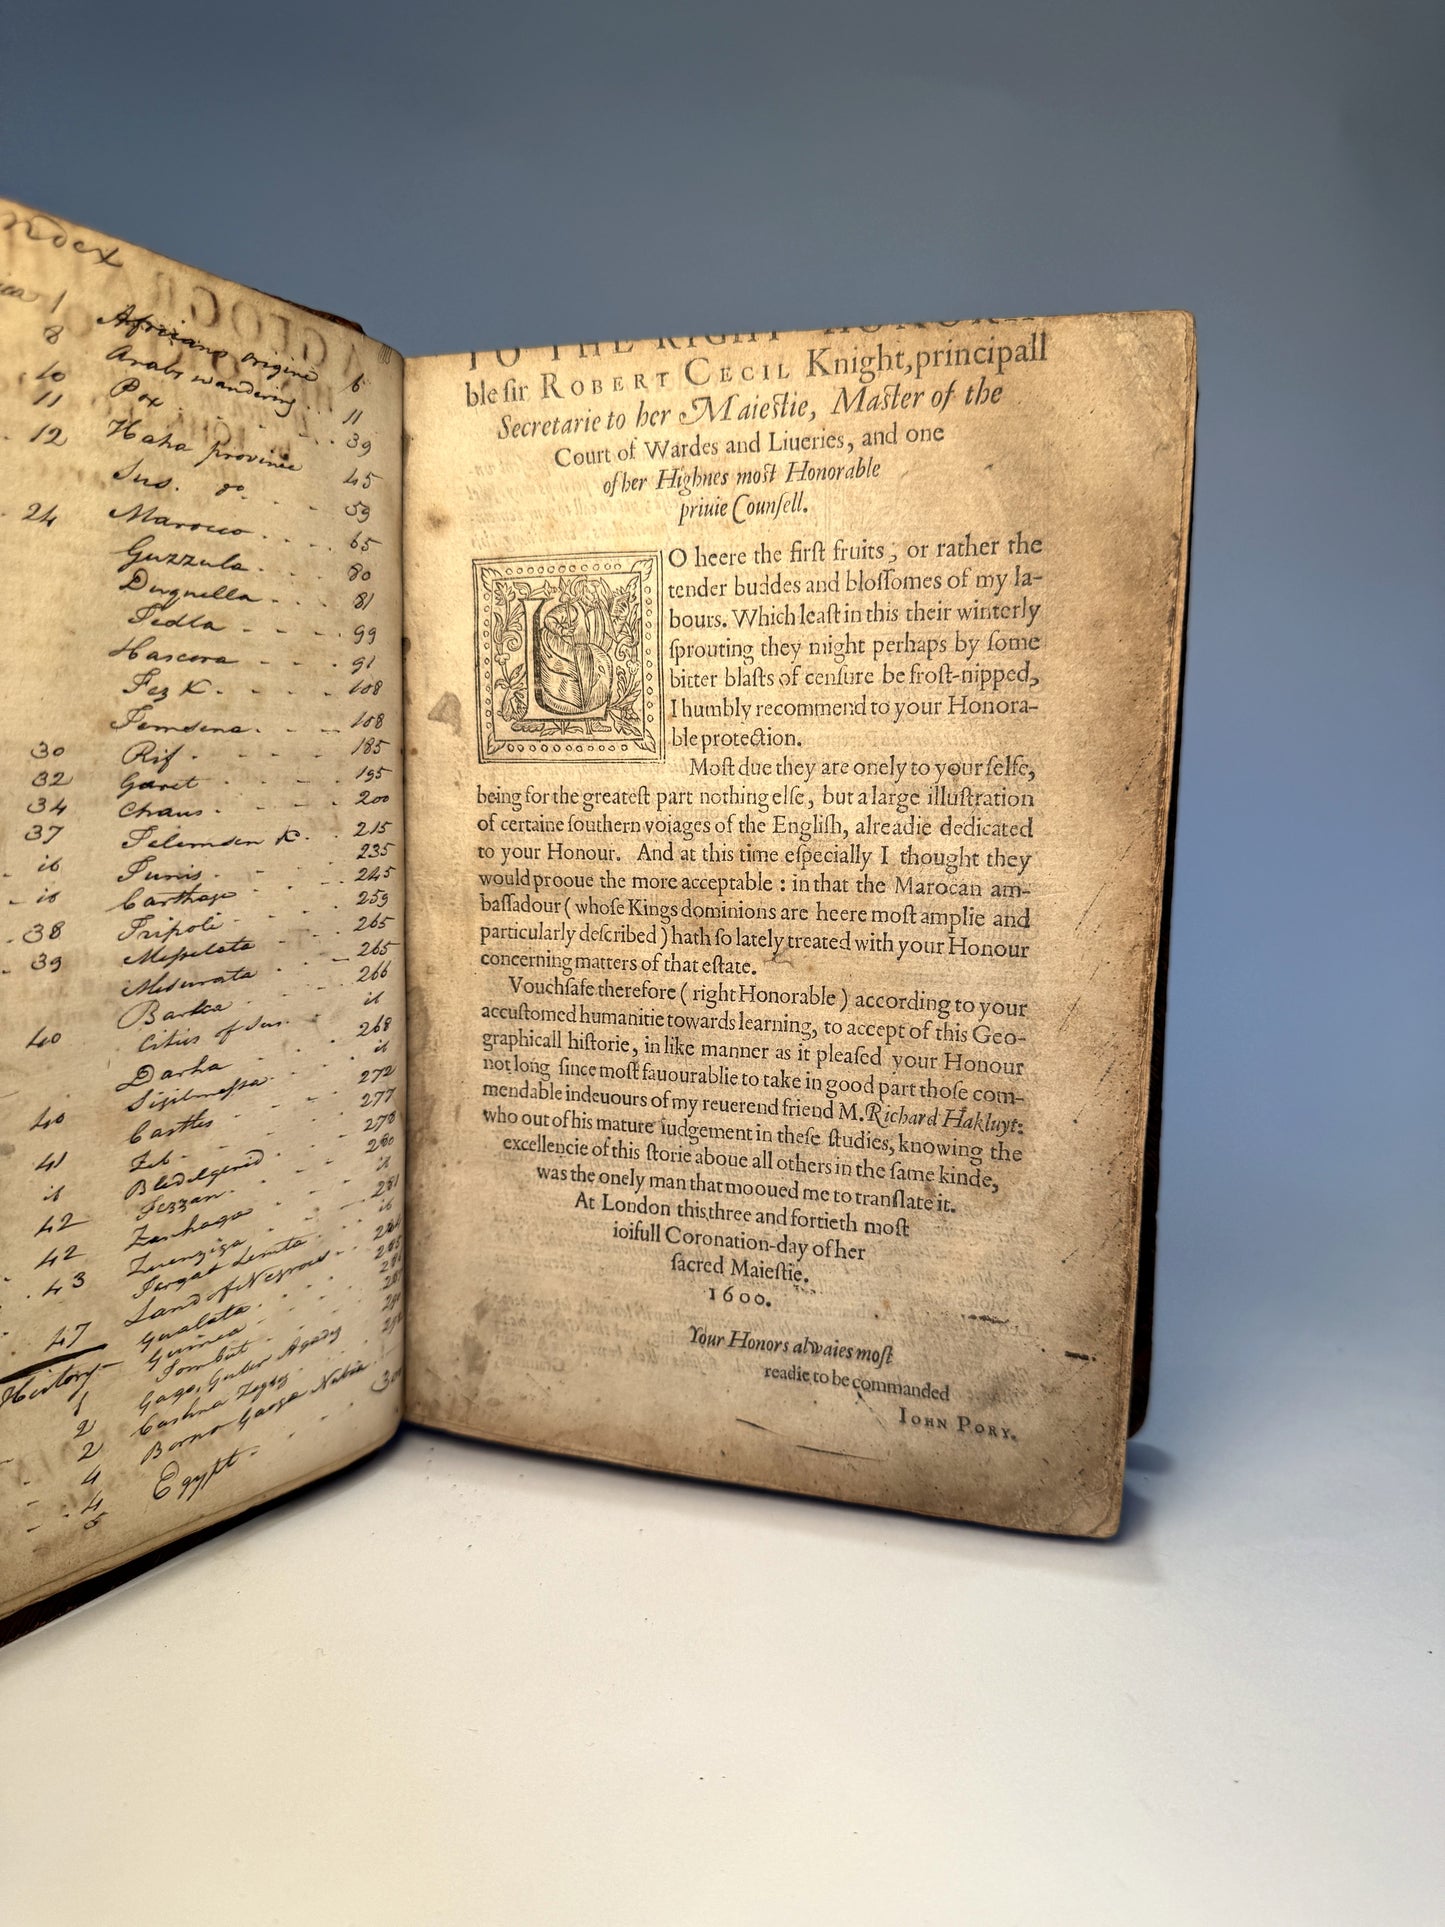 Index
1
8
10
11
12
24
30
32
34
37
ib
ib
38
39
40
40
41
ib
42
42
43
47
History
1
2
2
4
4
5
Africans origine 6
Arabs wandering 11
Pox 39
Haha province 45
Sus. do 59
Marocco 65
Guzzula 80
Duquella 81
Tedla 99
Hascora 91
Fez K. 108
Temsena 108
Rif 185
Garet 195
Chaus 200
Telemsen K. 215
Tunis 235
Carthage 245
Tripoli 259
Messelata 265
Mesurata 265
Barka 266
Cities of Sus. ib
Darha 268
Sigilmessa ib
Castles 272
Zeb 277
Biledulgerid 278
Fezzan 280
Zanhaga ib
Zuenziga 281
Targat Lemta ib
Land of Negroes
Gualata
Guinea
Tombut
Gago, Guber Agadez
Cashna Zegzeg
Borno Gaoga Nubia
Egypt
TO THE RIGHT HONORA-
ble sir ROBERT CECIL Knight, principall
Secretarie to her Maiestie, Master of the
Court of Wardes and Liueries, and one
of her Highnes most Honorable
priuie Counsell.
LO heere the first fruits, or rather the
tender buddes and blossomes of my la-
bours. Which least in this their winterly
sprouting they might perhaps by some
bitter blasts of censure be frost-nipped,
I humbly recommend to your Honora-
ble protection.
Most due they are onely to your selfe,
being for the greatest part nothing else, but a large illustration
of certaine southern voiages of the English, alreadie dedicated
to your Honour. And at this time especially I thought they
would prooue the more acceptable : in that the Marocan am-
bassadour ( whose Kings dominions are heere most amplie and
particularly described ) hath so lately treated with your Honour
concerning matters of that estate.
Vouchsafe therefore ( right Honorable ) according to your
accustomed humanitie towards learning, to accept of this Geo-
graphicall historie, in like manner as it pleased your Honour
not long since most fauourablie to take in good part those com-
mendable indeuours of my reuerend friend M. Richard Hakluyt:
who out of his mature iudgement in these studies, knowing the
excellencie of this storie aboue all others in the same kinde,
was the onely man that mooued me to translate it.
At London this three and fortieth most
ioifull Coronation-day of her
sacred Maiestie.
1600.
Your Honors alwaies most
readie to be commanded
IOHN PORY.